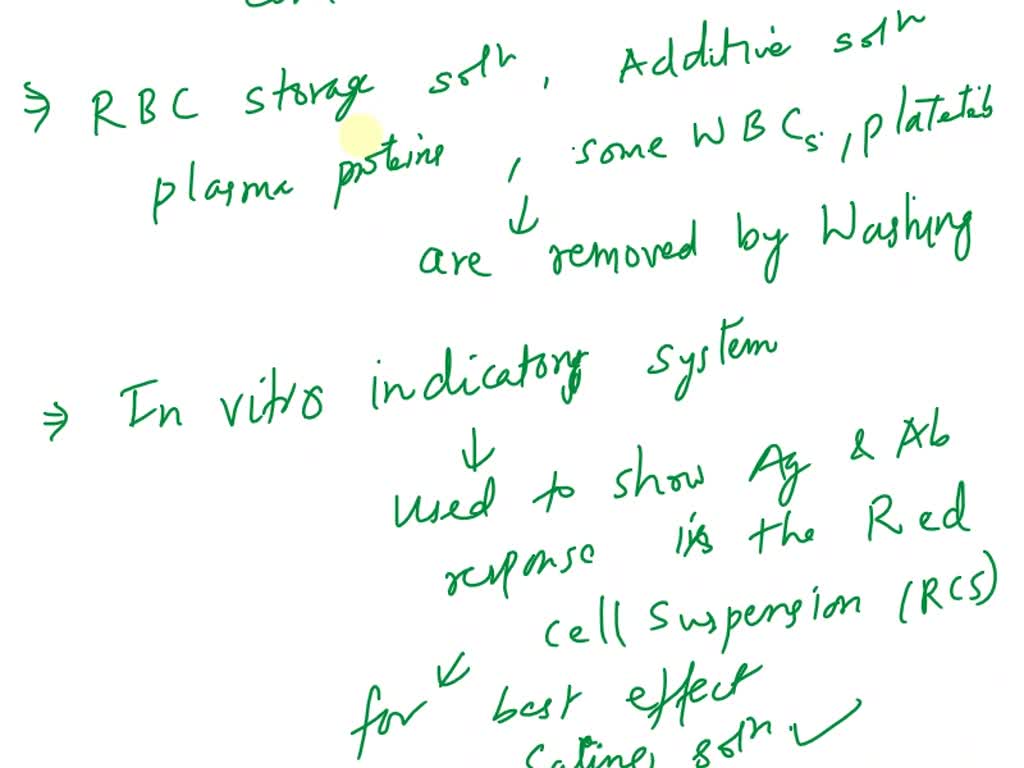 ⇒ RBC storage soln, Additive soln
plasma proteins, some WBCs, platelets
↓
are removed by Washing
⇒ In vitro indicatory system
↓
used to show Ag & Ab
response is the Red
cell suspension (RCS)
↙
for best effect
saline soln ✓